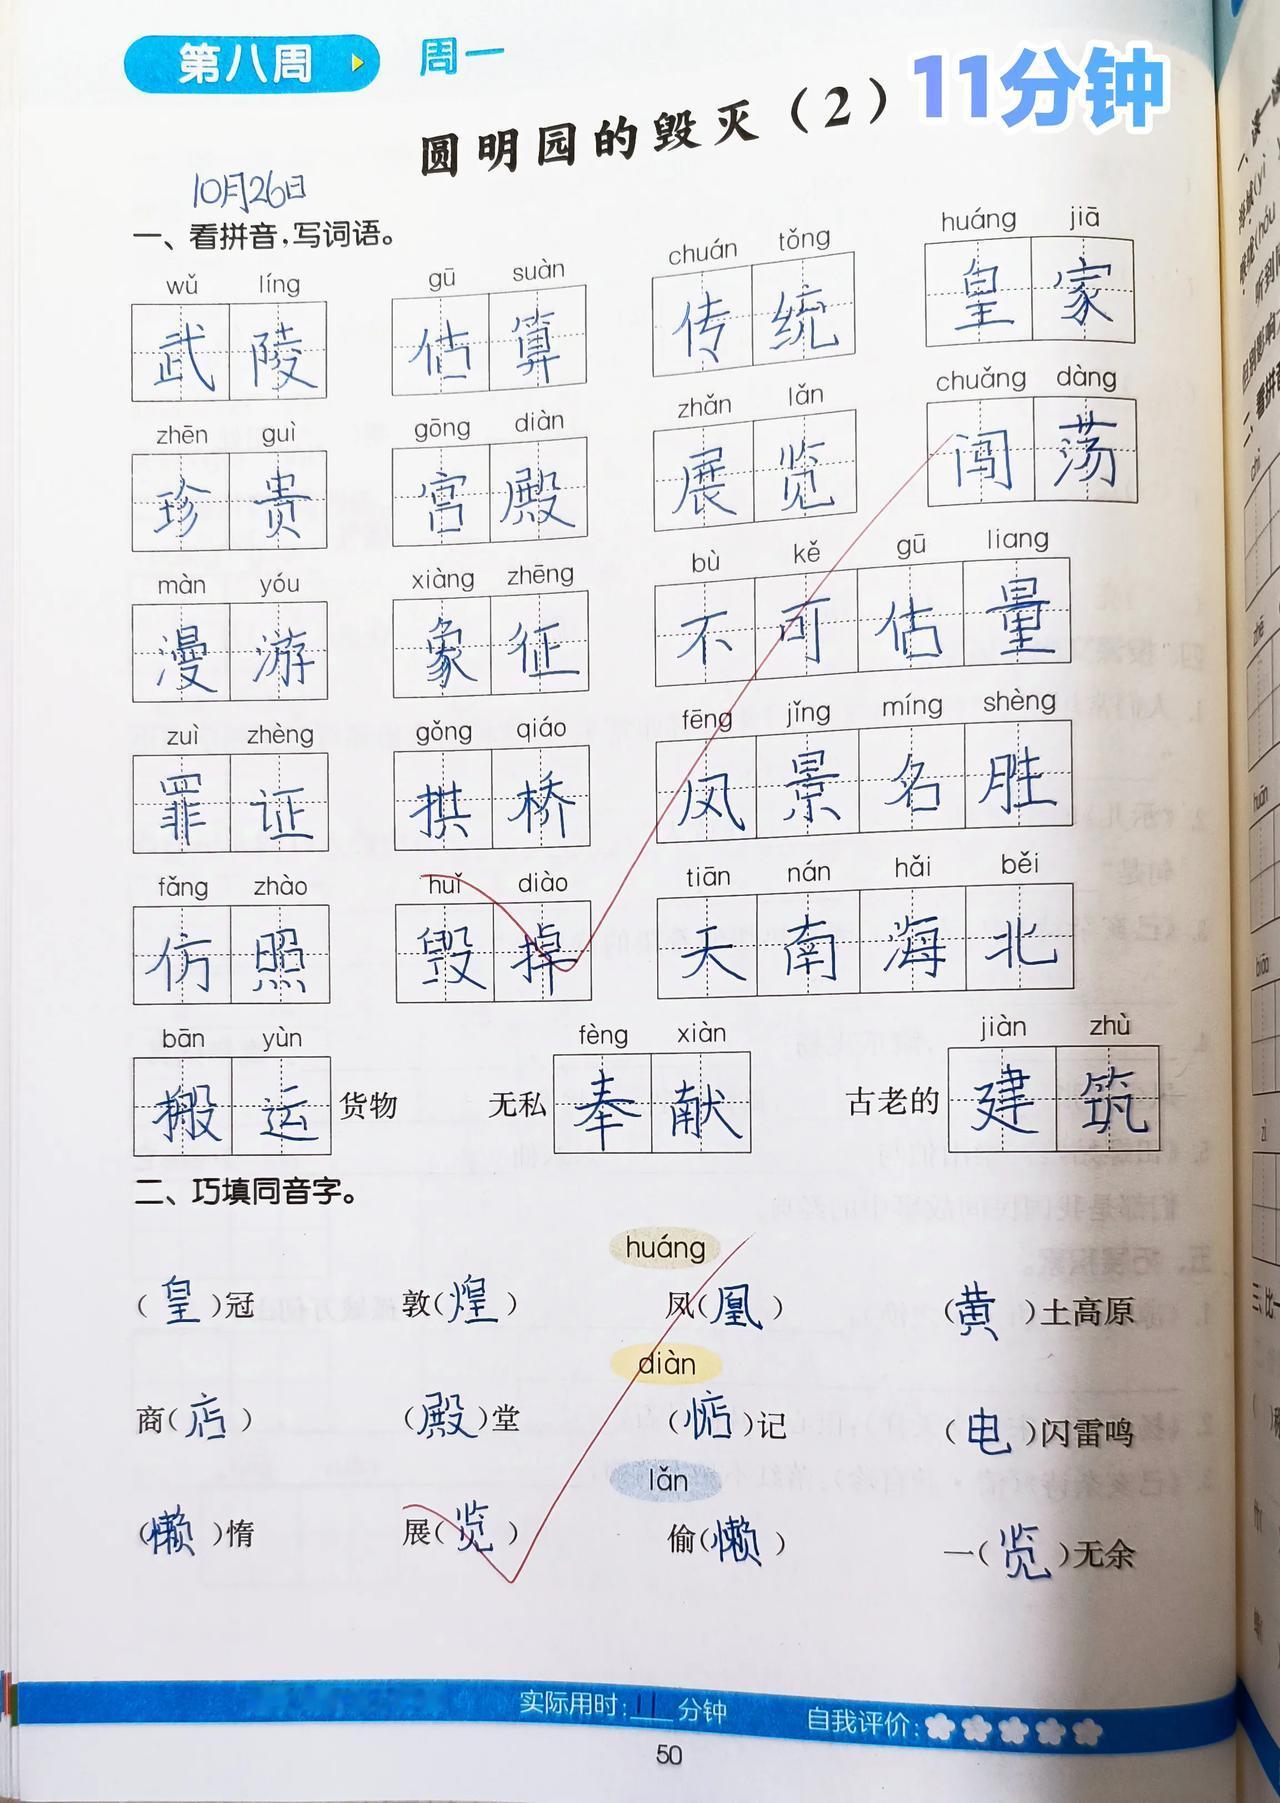 第八周 周一 11分钟
圆明园的毁灭（2）
10月26日
一、看拼音,写词语。
wǔ líng gū suàn chuán tǒng huáng jiā
武陵 估算 传统 皇家
zhēn guì gōng diàn zhǎn lǎn chuǎng dàng
珍贵 宫殿 展览 闯荡
màn yóu xiàng zhēng bù kě gū liang
漫游 象征 不可估量
zuì zhèng gǒng qiáo fēng jǐng míng shèng
罪证 拱桥 风景名胜
fǎng zhào huǐ diào tiān nán hǎi běi
仿照 毁掉 天南海北
bān yùn fèng xiàn jiàn zhù
搬运货物 无私奉献 古老的建筑
二、巧填同音字。
huáng
（皇）冠 敦（煌） 凤（凰） （黄）土高原
diàn
商（店） （殿）堂 （惦）记 （电）闪雷鸣
lǎn
（懒）惰 展（览） 偷（懒） 一（览）无余
实际用时:11分钟 自我评价:
50